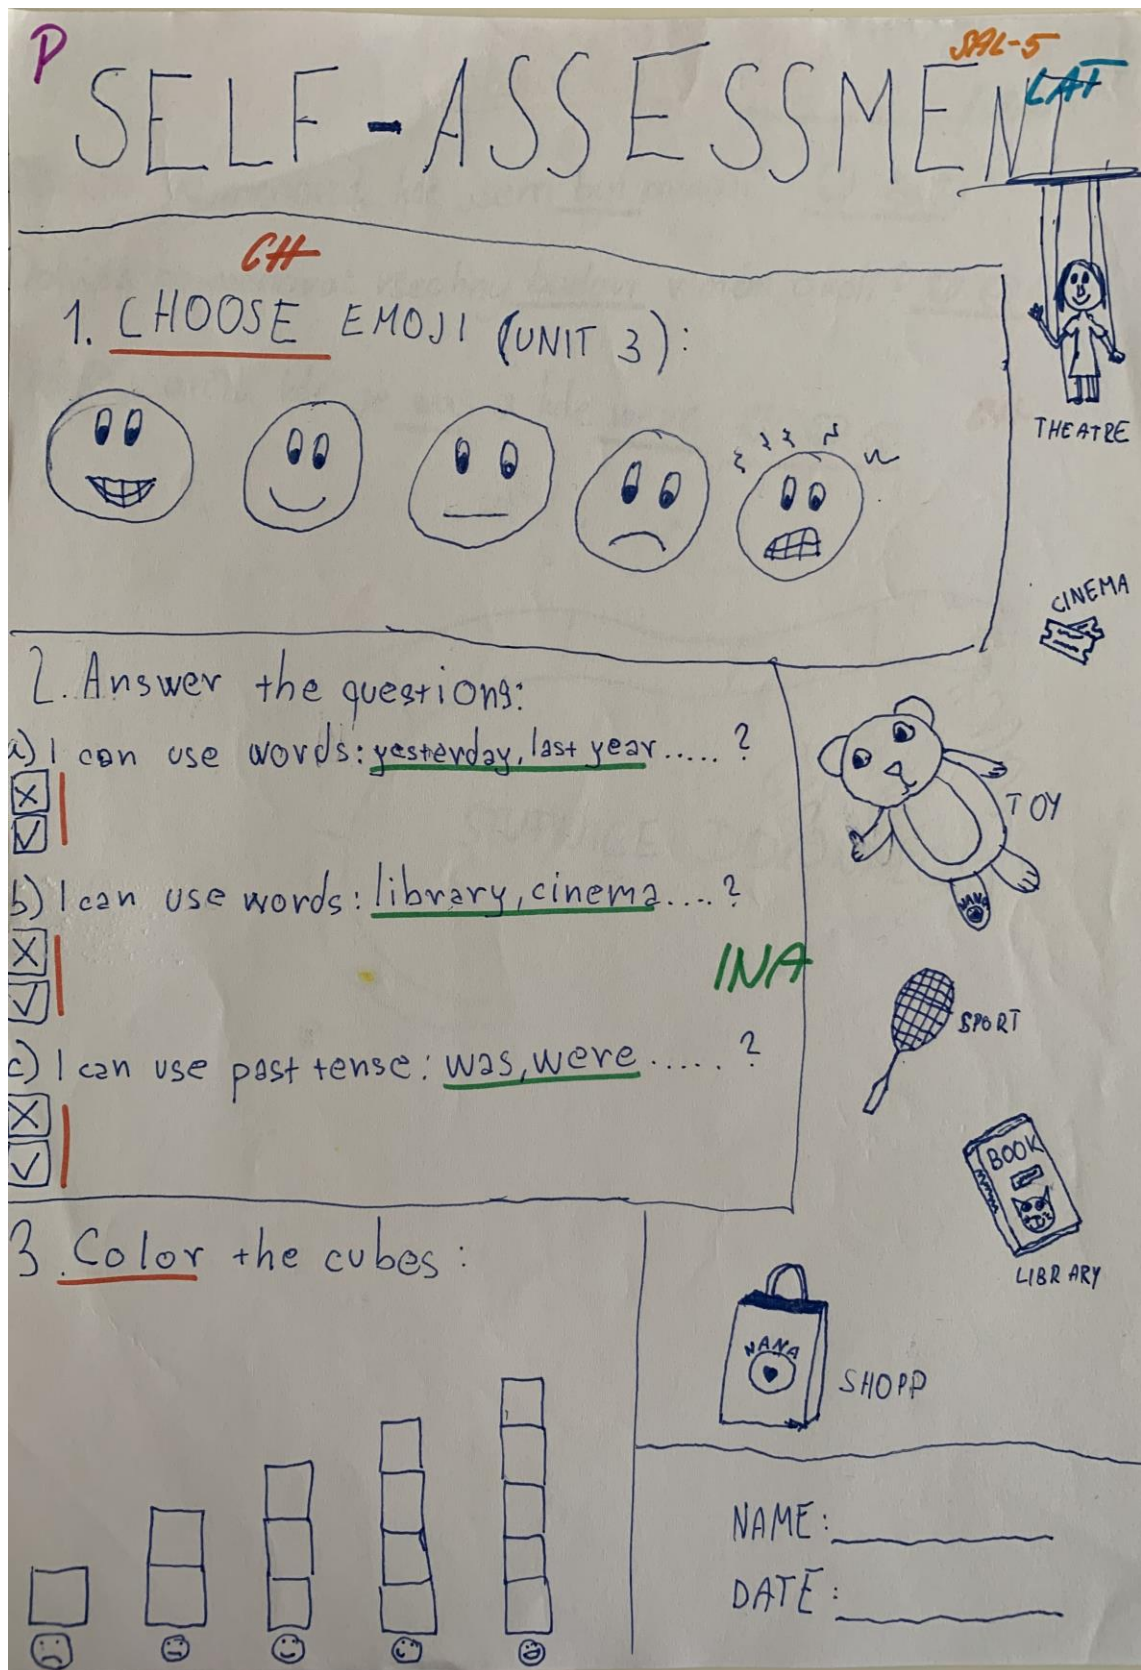 P
SAL-5
LAT
SELF-ASSESSMENT
CH
1. CHOOSE EMOJI (UNIT 3):
THEATRE
CINEMA
2. Answer the questions:
a) I can use words: yesterday, last year.....?
X
✓
TOY
b) I can use words: library, cinema....?
X
✓
NANA
INA
SPORT
c) I can use past tense: was, were.....?
X
✓
BOOK
LIBRARY
3. Color the cubes:
NANA
SHOPP
NAME:
DATE: